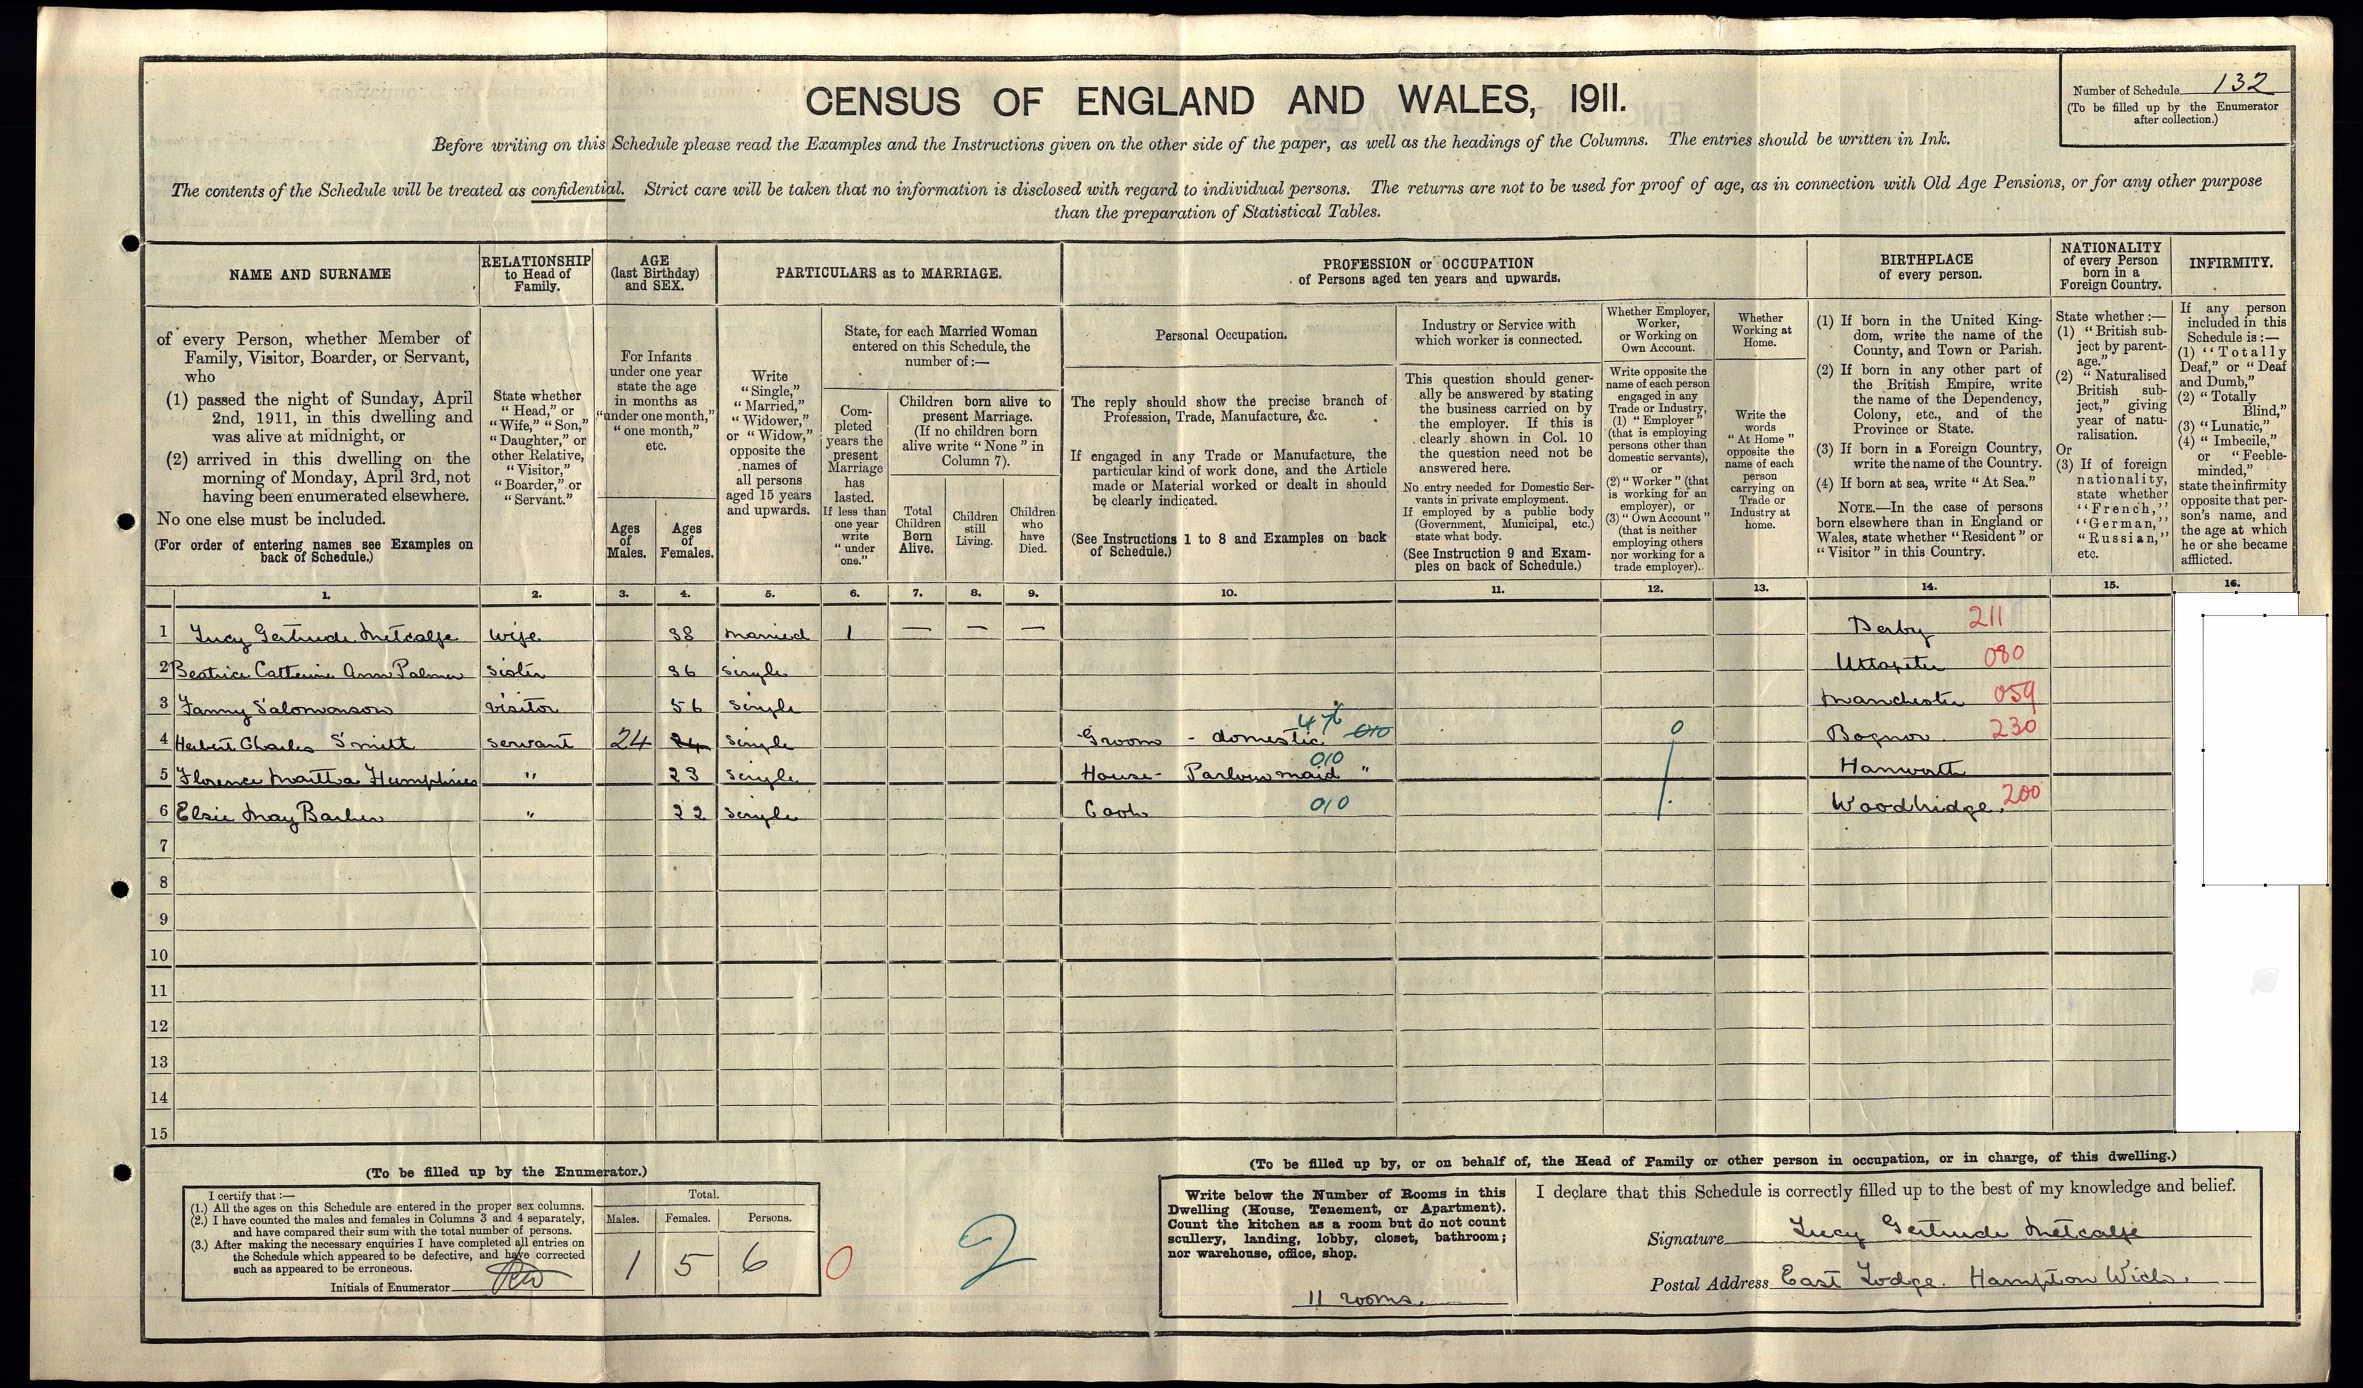 CENSUS OF ENGLAND AND WALES, 1911.
Number of Schedule 132
(To be filled up by the Enumerator
after collection.)
Before writing on this Schedule please read the Examples and the Instructions given on the other side of the paper, as well as the headings of the Columns. The entries should be written in Ink.
The contents of the Schedule will be treated as confidential. Strict care will be taken that no information is disclosed with regard to individual persons. The returns are not to be used for proof of age, as in connection with Old Age Pensions, or for any other purpose
than the preparation of Statistical Tables.
NAME AND SURNAME
of every Person, whether Member of
Family, Visitor, Boarder, or Servant,
who
(1) passed the night of Sunday, April
2nd, 1911, in this dwelling and
was alive at midnight, or
(2) arrived in this dwelling on the
morning of Monday, April 3rd, not
having been enumerated elsewhere.
No one else must be included.
(For order of entering names see Examples on
back of Schedule.)
RELATIONSHIP
to Head of
Family.
State whether
"Head," or
"Wife," "Son,"
"Daughter," or
other Relative,
"Visitor,"
"Boarder," or
"Servant."
AGE
(last Birthday)
and SEX.
For Infants
under one year
state the age
in months as
"under one month,"
"one month,"
etc.
Ages
of
Males.
Ages
of
Females.
PARTICULARS as to MARRIAGE.
Write
"Single,"
"Married,"
"Widower,"
or "Widow,"
opposite the
names of
all persons
aged 15 years
and upwards.
State, for each Married Woman
entered on this Schedule, the
number of:—
Com-
pleted
years the
present
Marriage
has
lasted.
If less than
one year
write
"under
one."
Children born alive to
present Marriage.
(If no children born
alive write "None" in
Column 7).
Total
Children
Born
Alive.
Children
still
Living.
Children
who
have
Died.
PROFESSION or OCCUPATION
of Persons aged ten years and upwards.
Personal Occupation.
The reply should show the precise branch of
Profession, Trade, Manufacture, &c.
If engaged in any Trade or Manufacture, the
particular kind of work done, and the Article
made or Material worked or dealt in should
be clearly indicated.
(See Instructions 1 to 8 and Examples on back
of Schedule.)
Industry or Service with
which worker is connected.
This question should gener-
ally be answered by stating
the business carried on by
the employer. If this is
clearly shown in Col. 10
the question need not be
answered here.
No entry needed for Domestic Ser-
vants in private employment.
If employed by a public body
(Government, Municipal, etc.)
state what body.
(See Instruction 9 and Exam-
ples on back of Schedule.)
Whether Employer,
Worker,
or Working on
Own Account.
Write opposite the
name of each person
engaged in any
Trade or Industry,
(1) "Employer"
(that is employing
persons other than
domestic servants),
or
(2) "Worker" (that
is working for an
employer), or
(3) "Own Account"
(that is neither
employing others
nor working for a
trade employer).
Whether
Working at
Home.
Write the
words
"At Home"
opposite the
name of each
person
carrying on
Trade or
Industry at
home.
BIRTHPLACE
of every person.
(1) If born in the United King-
dom, write the name of the
County, and Town or Parish.
(2) If born in any other part of
the British Empire, write
the name of the Dependency,
Colony, etc., and of the
Province or State.
(3) If born in a Foreign Country,
write the name of the Country.
(4) If born at sea, write "At Sea."
NOTE.—In the case of persons
born elsewhere than in England or
Wales, state whether "Resident" or
"Visitor" in this Country.
NATIONALITY
of every Person
born in a
Foreign Country.
State whether:—
(1) "British sub-
ject by parent-
age."
(2) "Naturalised
British sub-
ject," giving
year of natu-
ralisation.
Or
(3) If of foreign
nationality,
state whether
"French,"
"German,"
"Russian,"
etc.
INFIRMITY.
If any person
included in this
Schedule is:—
(1) "Totally
Deaf," or "Deaf
and Dumb,"
(2) "Totally
Blind,"
(3) "Lunatic,"
(4) "Imbecile,"
or "Feeble-
minded,"
state the infirmity
opposite that per-
son's name, and
the age at which
he or she became
afflicted.
1. 2. 3. 4. 5. 6. 7. 8. 9. 10. 11. 12. 13. 14. 15. 16.
1 Lucy Gertrude Metcalfe wife 38 married 1 — — — Derby 211
2 Beatrice Catherine Ann Palmer sister 36 single Uttoxeter 080
3 Fanny Salomonson visitor 56 single Manchester 059
4 Herbert Charles Smith servant 24 24 single Groom - domestic 010 0 Bognor 230
5 Florence Martha Humphries " 23 single House-Parlour maid " 010 Hanworth
6 Elsie May Barber " 22 single Cook 010 Woodbridge 200
7
8
9
10
11
12
13
14
15
(To be filled up by the Enumerator.)
I certify that:—
(1.) All the ages on this Schedule are entered in the proper sex columns.
(2.) I have counted the males and females in Columns 3 and 4 separately,
and have compared their sum with the total number of persons.
(3.) After making the necessary enquiries I have completed all entries on
the Schedule which appeared to be defective, and have corrected
such as appeared to be erroneous.
Initials of Enumerator
Total.
Males. Females. Persons.
1 5 6 0 2
(To be filled up by, or on behalf of, the Head of Family or other person in occupation, or in charge, of this dwelling.)
Write below the Number of Rooms in this
Dwelling (House, Tenement, or Apartment).
Count the kitchen as a room but do not count
scullery, landing, lobby, closet, bathroom;
nor warehouse, office, shop.
11 rooms.
I declare that this Schedule is correctly filled up to the best of my knowledge and belief.
Signature Lucy Gertrude Metcalfe
Postal Address East Lodge. Hampton Wick.